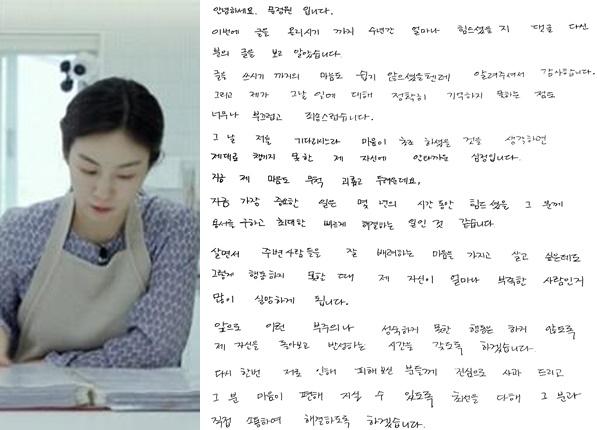 안녕하세요. 문정원 입니다.
이번에 글을 올리시기 까지 수년간 얼마나 힘드셨을지 댓글 다신
분의 글을 보고 알았습니다.
글을 쓰시기 까지의 마음도 쉽지 않으셨을텐데 알려주셔서 감사합니다.
그리고 제가 그날 일에 대해 정확히 기억하지 못하는 점도
너무나 부끄럽고 죄송스럽습니다.
그 날 저를 기다리시라 마음이 초조 하셨을 것을 생각하면
제대로 챙기지 못한 제 자신에 안타까운 심정입니다.
지금 제 마음도 무척 괴롭고 두려운데요,
지금 가장 중요한 일은 몇 년의 시간 동안 힘드셨을 그 분께
용서를 구하고 최대한 빠르게 해결하는 일인 것 같습니다.
살면서 주변사람들을 잘 배려하는 마음을 가지고 살고 싶은데도
그렇게 행동하지 못한 때 제 자신이 얼마나 부족한 사람인지
많이 실망하게 됩니다.
앞으로 이런 부주의나 성숙하지 못한 행동은 하지 않도록
제 자신을 돌아보고 반성하는 시간을 갖도록 하겠습니다.
다시 한번 저로 인해 피해보신 분들께 진심으로 사과 드리고
그 분 마음이 편해 지실 수 있도록 최선을 다해 그 분과
직접 소통하여 해결하도록 하겠습니다.